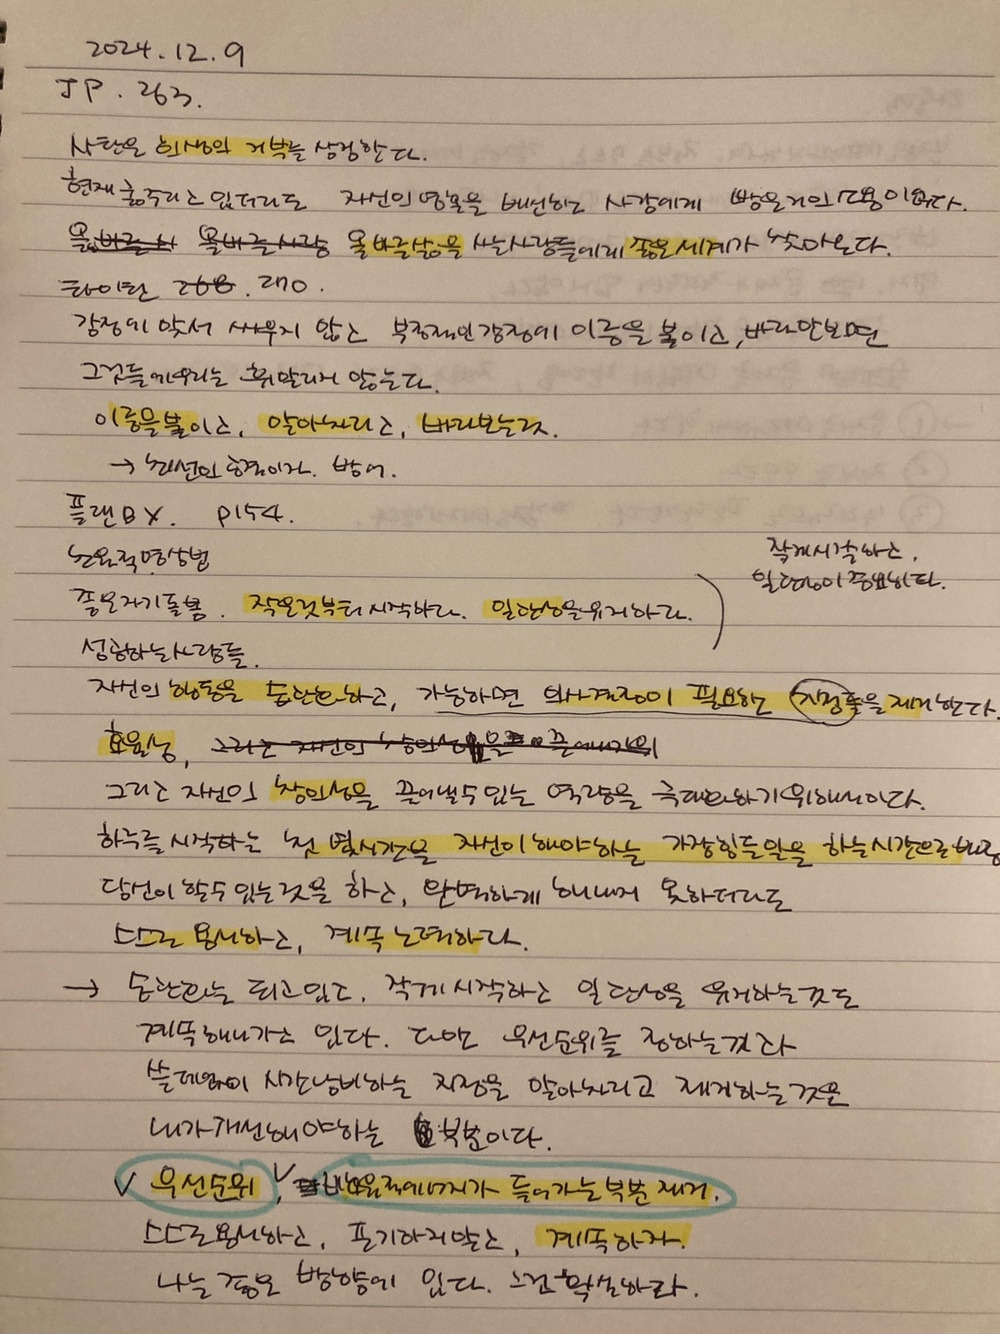 2024.12.9
JP. 263.
사탄은 희생의 거부를 상징한다.
현재 굶주리고 있더라도 자신의 영혼을 배신하는 사람에게 빵은 거의 소용이 없다.
올바른 올바른사람 올바른삶을 사는사람들에게 좋은세계가 찾아온다.
타이탄 268. 270.
감정에 맞서 싸우지 않고 부정적인감정에 이름을 붙이고, 바라만보면
그것들에우리는 휘말리지 않는다.
이름을붙이고, 알아차리고, 바라보는것.
→ 최선의 공격이자. 방어.
플랜BX. P154.
작게시작하고,
일관성이 중요하다.
노요적명상법
좋은자기돌봄. 작은것부터시작하라. 일관성을유지하라.
성공하는사람들.
자신의 행동을 습관화하고, 가능하면 의사결정이 필요한 지점들을 제거한다.
효율성,
그리고 자신의 창의성을 끌어낼수있는 역량을 극대화하기위해서이다.
하루를시작하는 첫 몇시간을 자신이해야하는 가장힘든일을 하는시간으로
당신이 할수있는것을 하고, 완벽하게 해내지 못하더라도
스스로 용서하고, 계속 노력하라.
→ 습관화는 되고있고, 작게시작하고 일관성을 유지하는것도
계속해나가고 있다. 다만 우선순위를 정하는것과
쓸데없이 시간낭비하는 지점을 알아차리고 제거하는것은
내가개선해야하는 부분이다.
✓ 우선순위, ✓ 에너지가 들어가는부분 제거.
스스로용서하고, 포기하지말고, 계속하자.
나는 좋은 방향에 있다. 그건 확실하다.